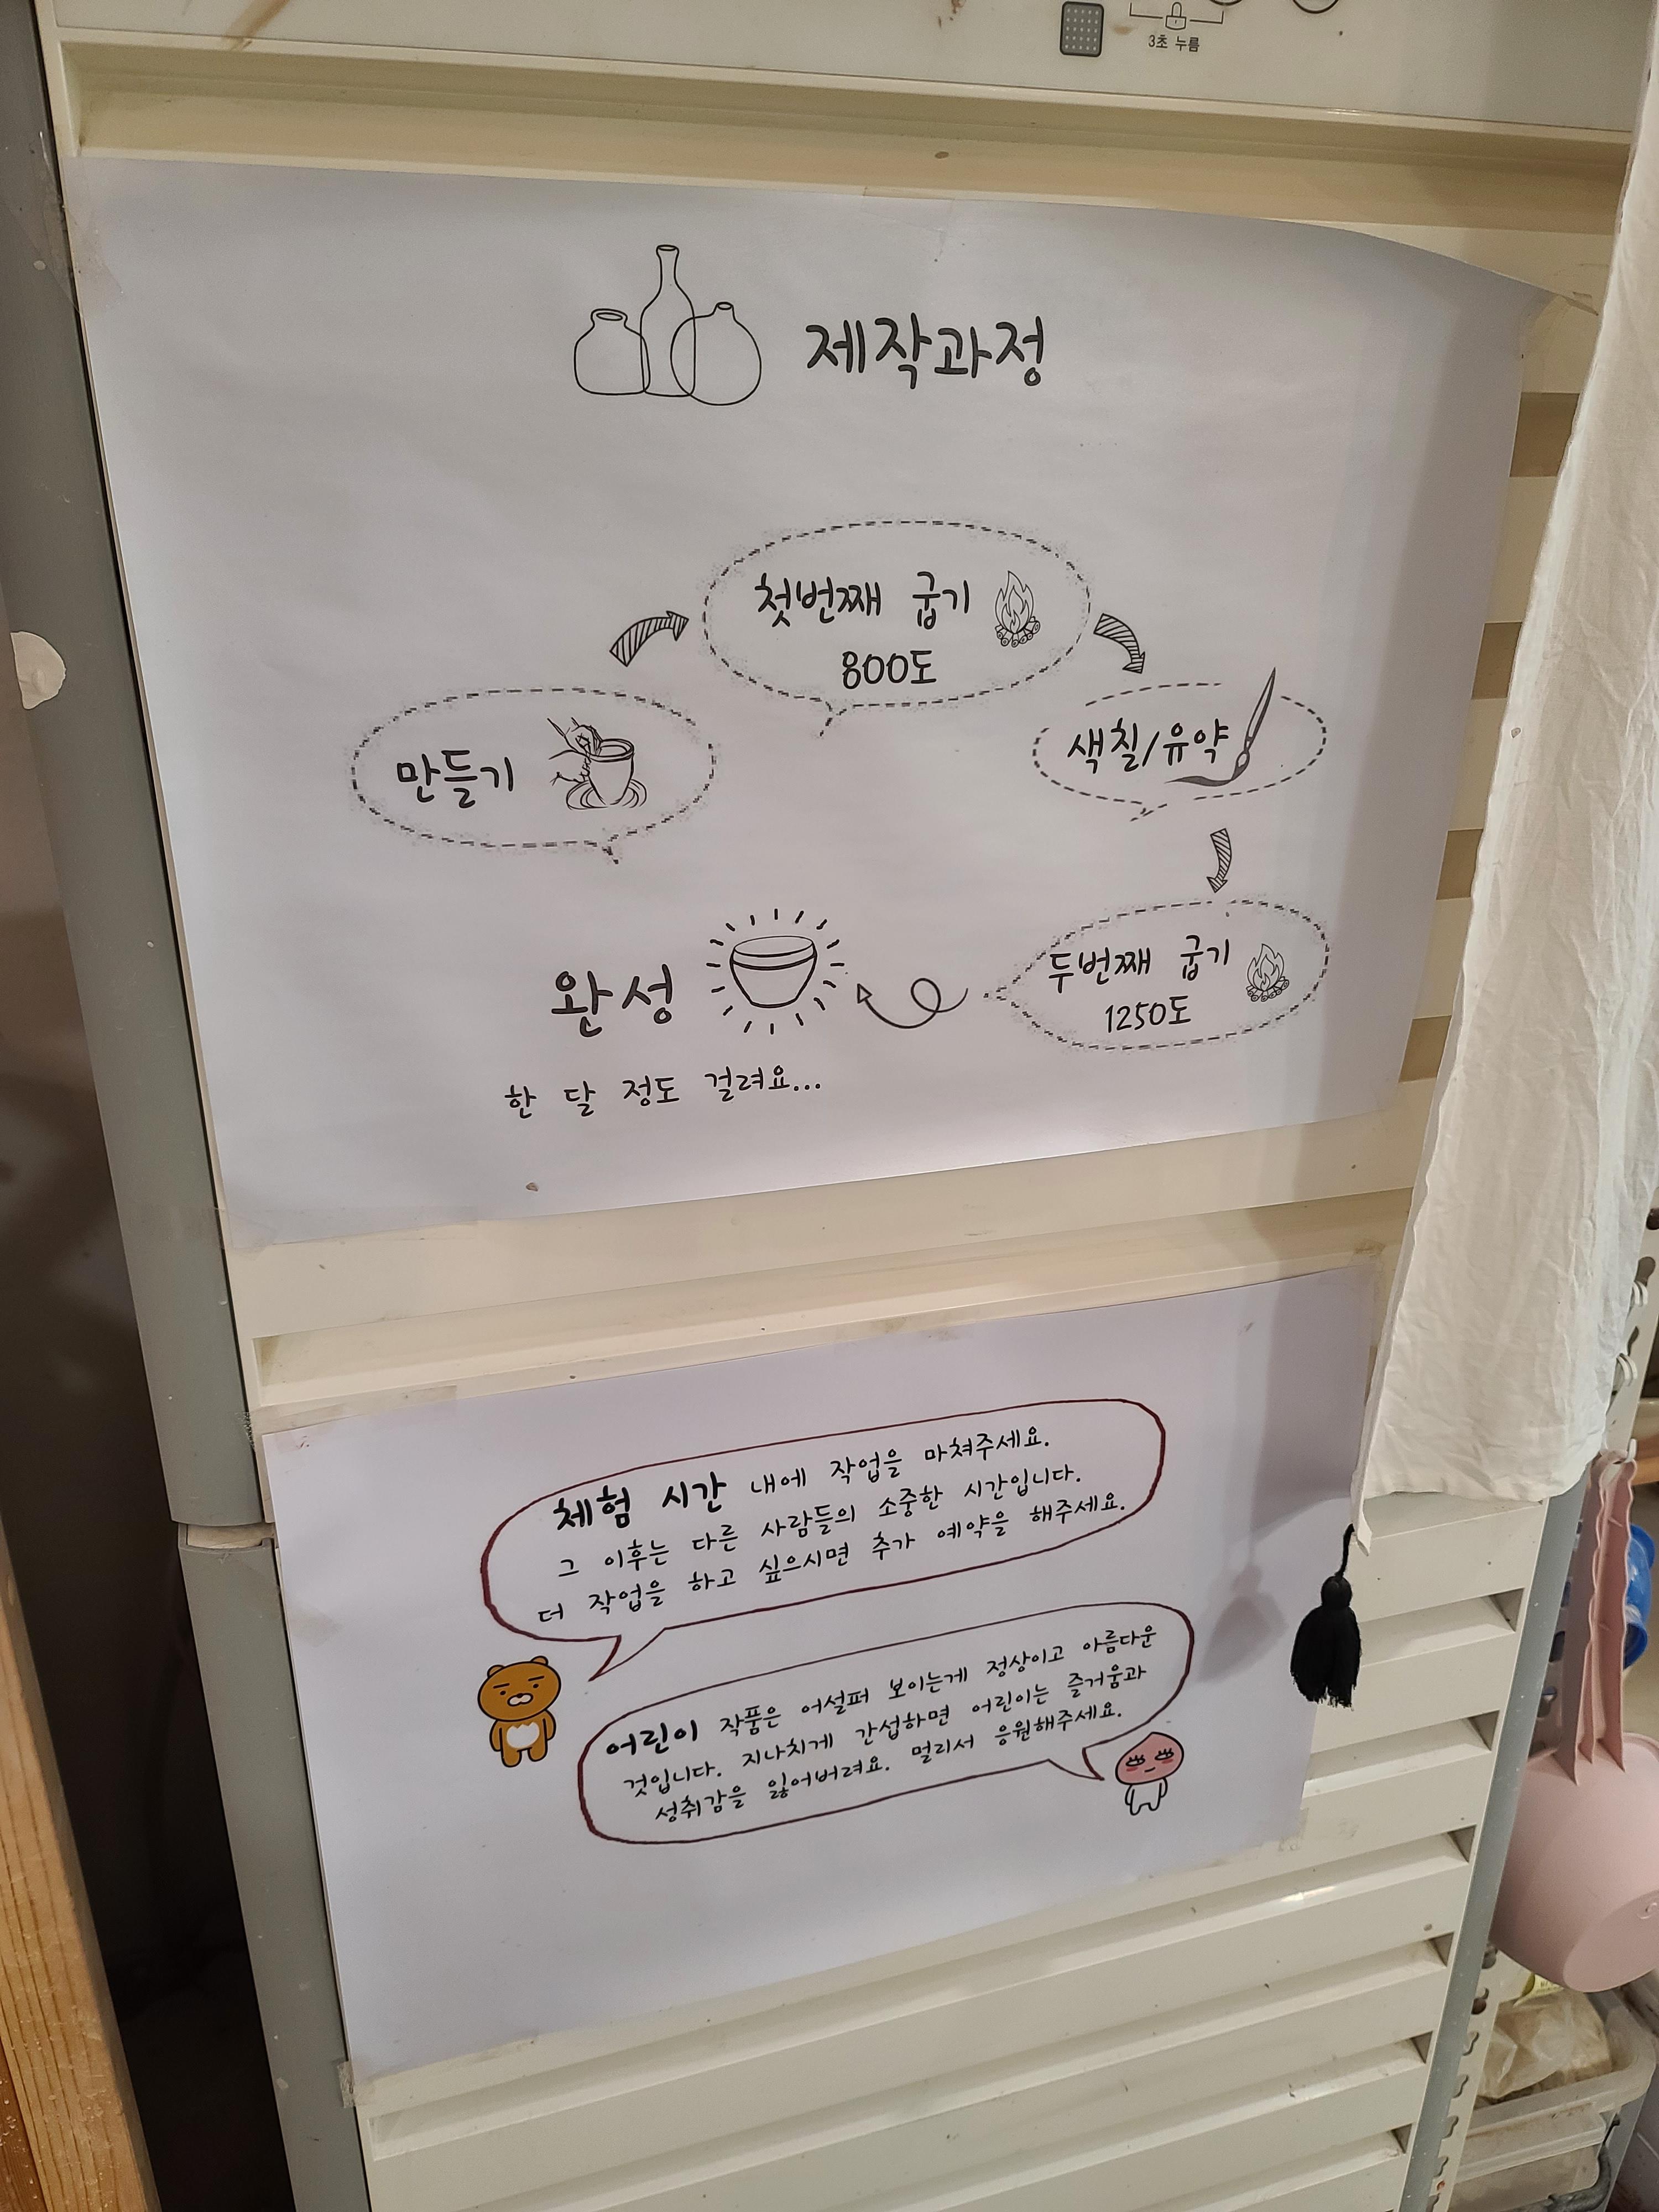 3초 누름
제작과정
만들기
첫번째 굽기
800도
색칠/유약
두번째 굽기
1250도
완성
한 달 정도 걸려요...
체험 시간 내에 작업을 마쳐주세요.
그 이후는 다른 사람들의 소중한 시간입니다.
더 작업을 하고 싶으시면 추가 예약을 해주세요.
어린이 작품은 어설퍼 보이는게 정상이고 아름다운
것입니다. 지나치게 간섭하면 어린이는 즐거움과
성취감을 잃어버려요. 멀리서 응원해주세요.